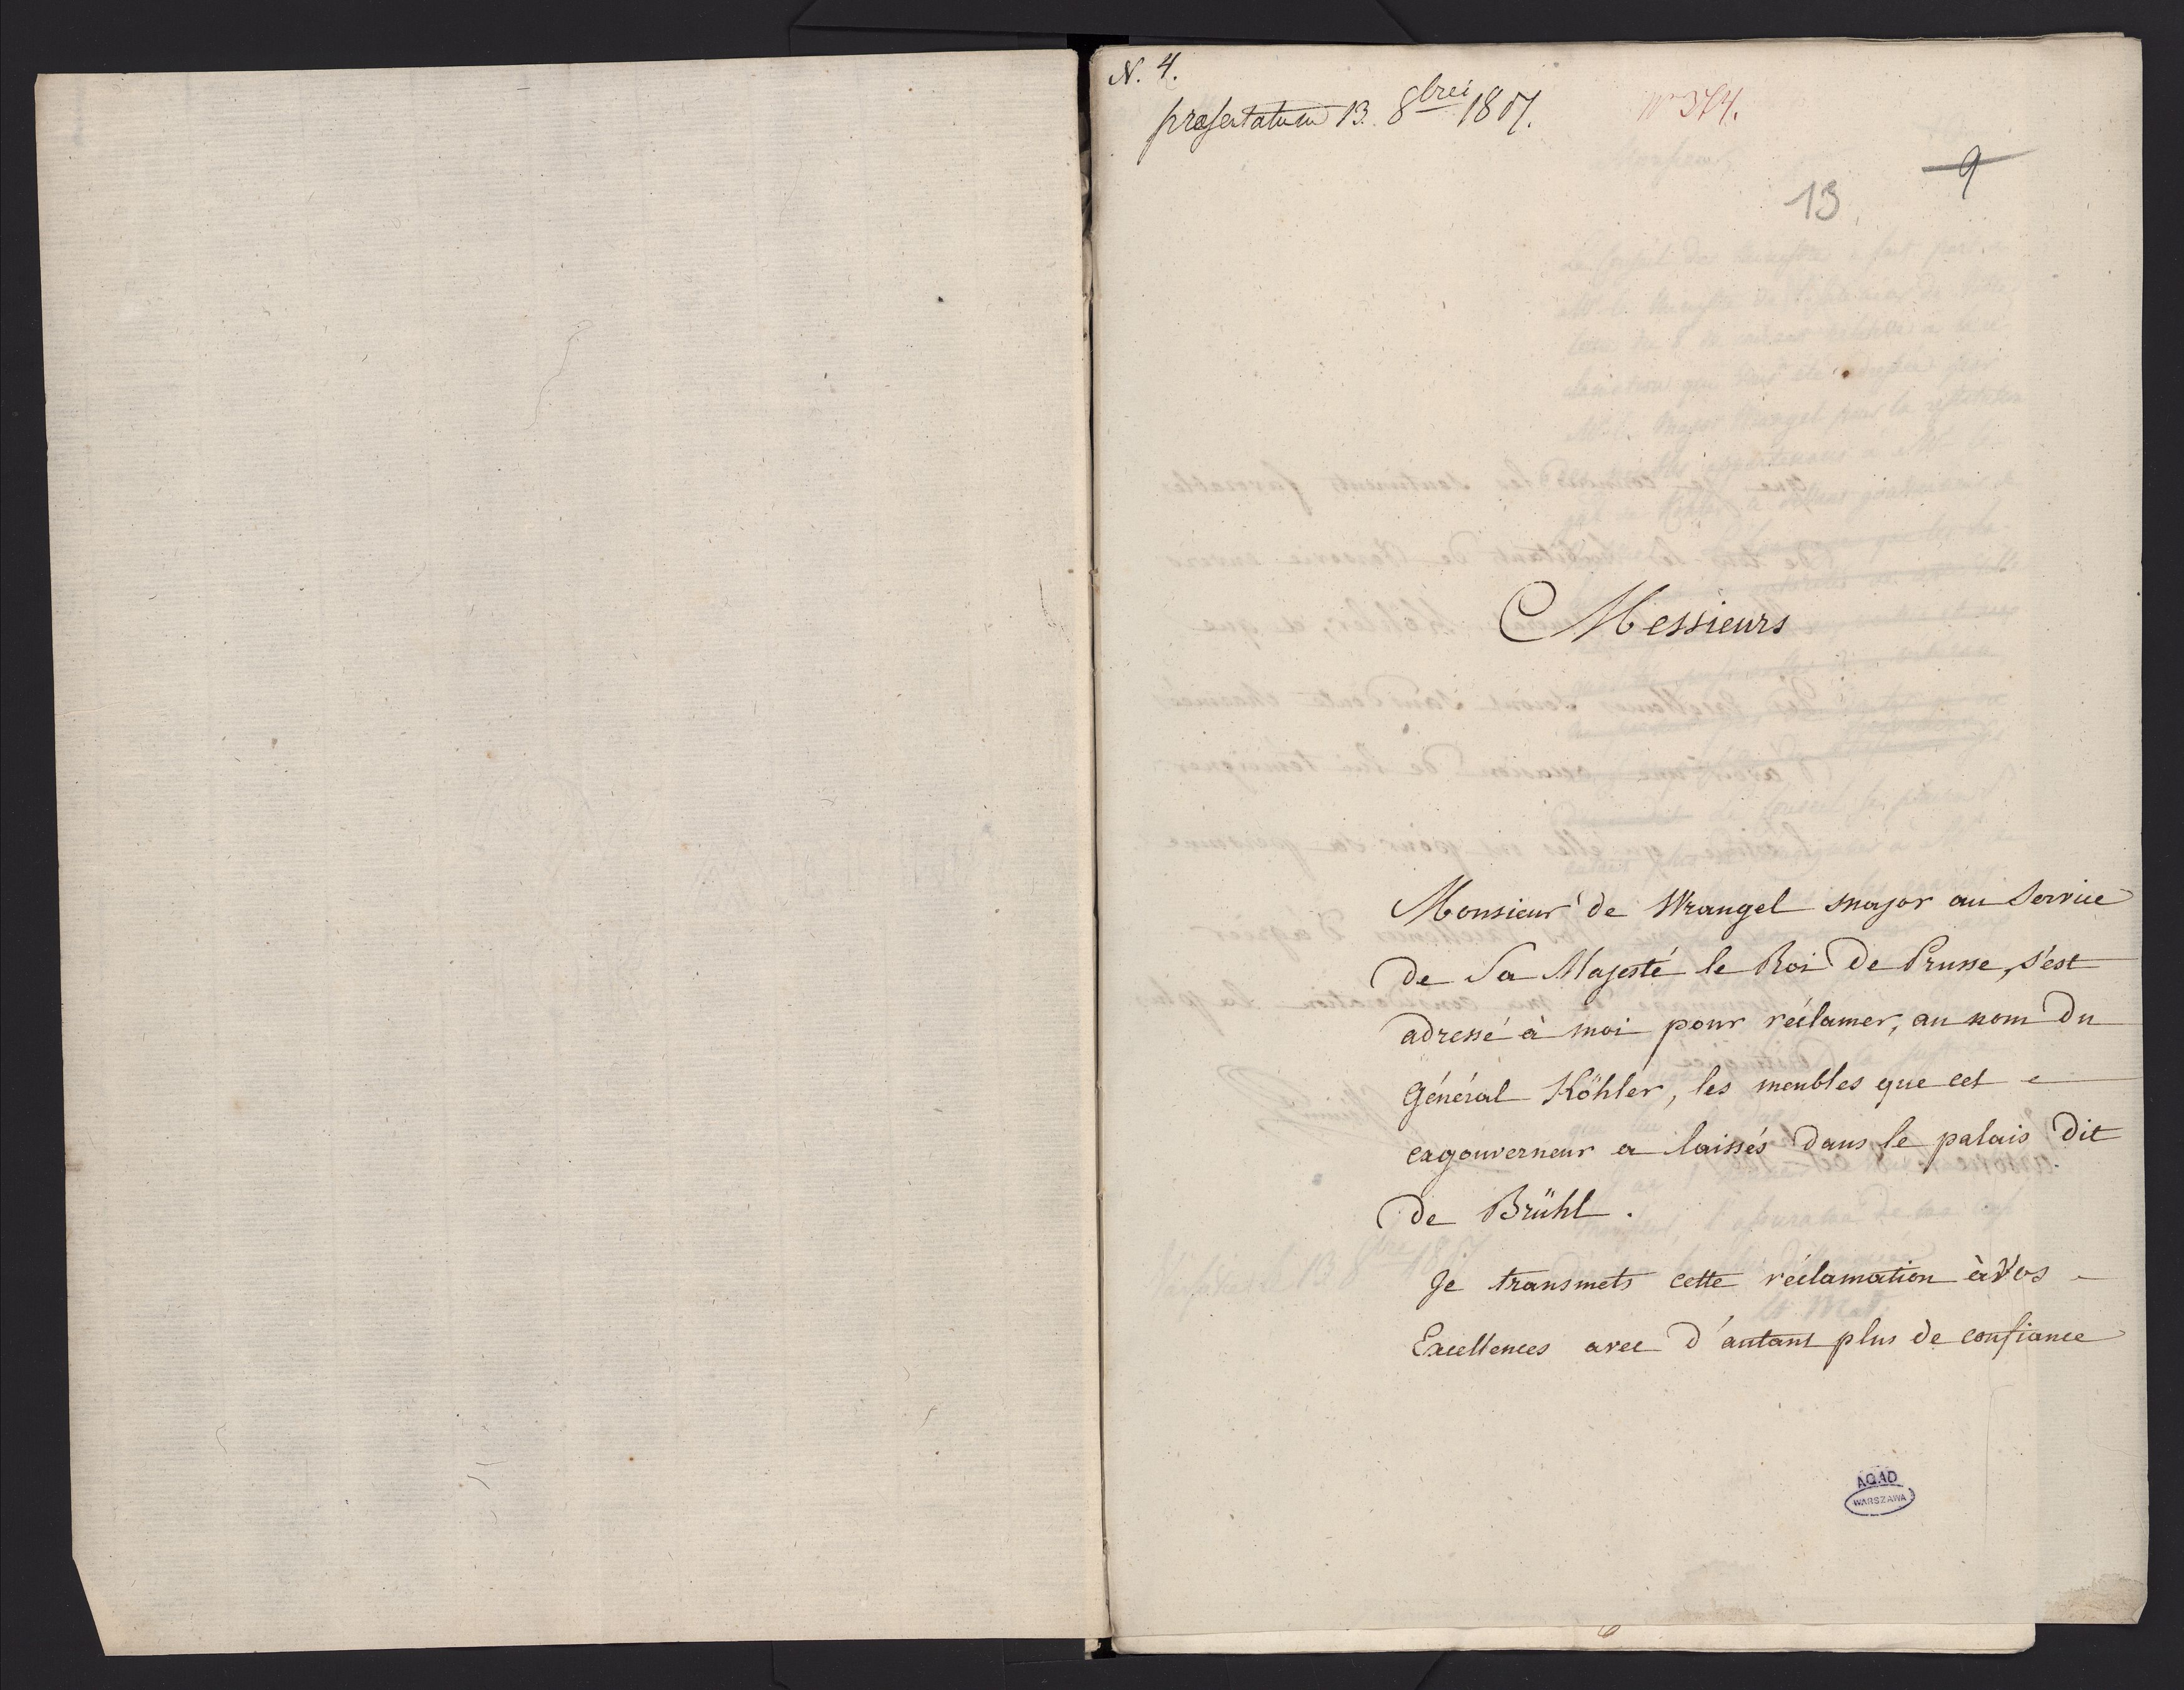 N. 4.
præsentatum 13. 8brei 1807.
No 374.
9
13
Messieurs
Monsieur de Wrangel major au Service
de Sa Majesté le Roi de Prusse, s'est
adressé à moi pour réclamer, au nom du
Général Köhler, les meubles que cet
exgouverneur a laissés dans le palais dit
de Brühl.
Je transmets cette réclamation à Vos
Excellences avec d'autant plus de confiance
AGAD
WARSZAWA